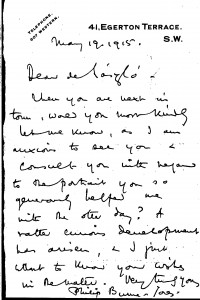 TELEPHONE.
007 WESTERN.
41, EGERTON TERRACE.
S.W.
May 19. 1915.
Dear de László -
When you are next in
town, would you most kindly
let me know, as I am
anxious to see you &
consult you with regard
to the portrait you so
generously helped me
with the other day? A
rather curious development
has arisen, & I just
want to know your wishes
in the matter. Very truly yours
Philip Burne-Jones